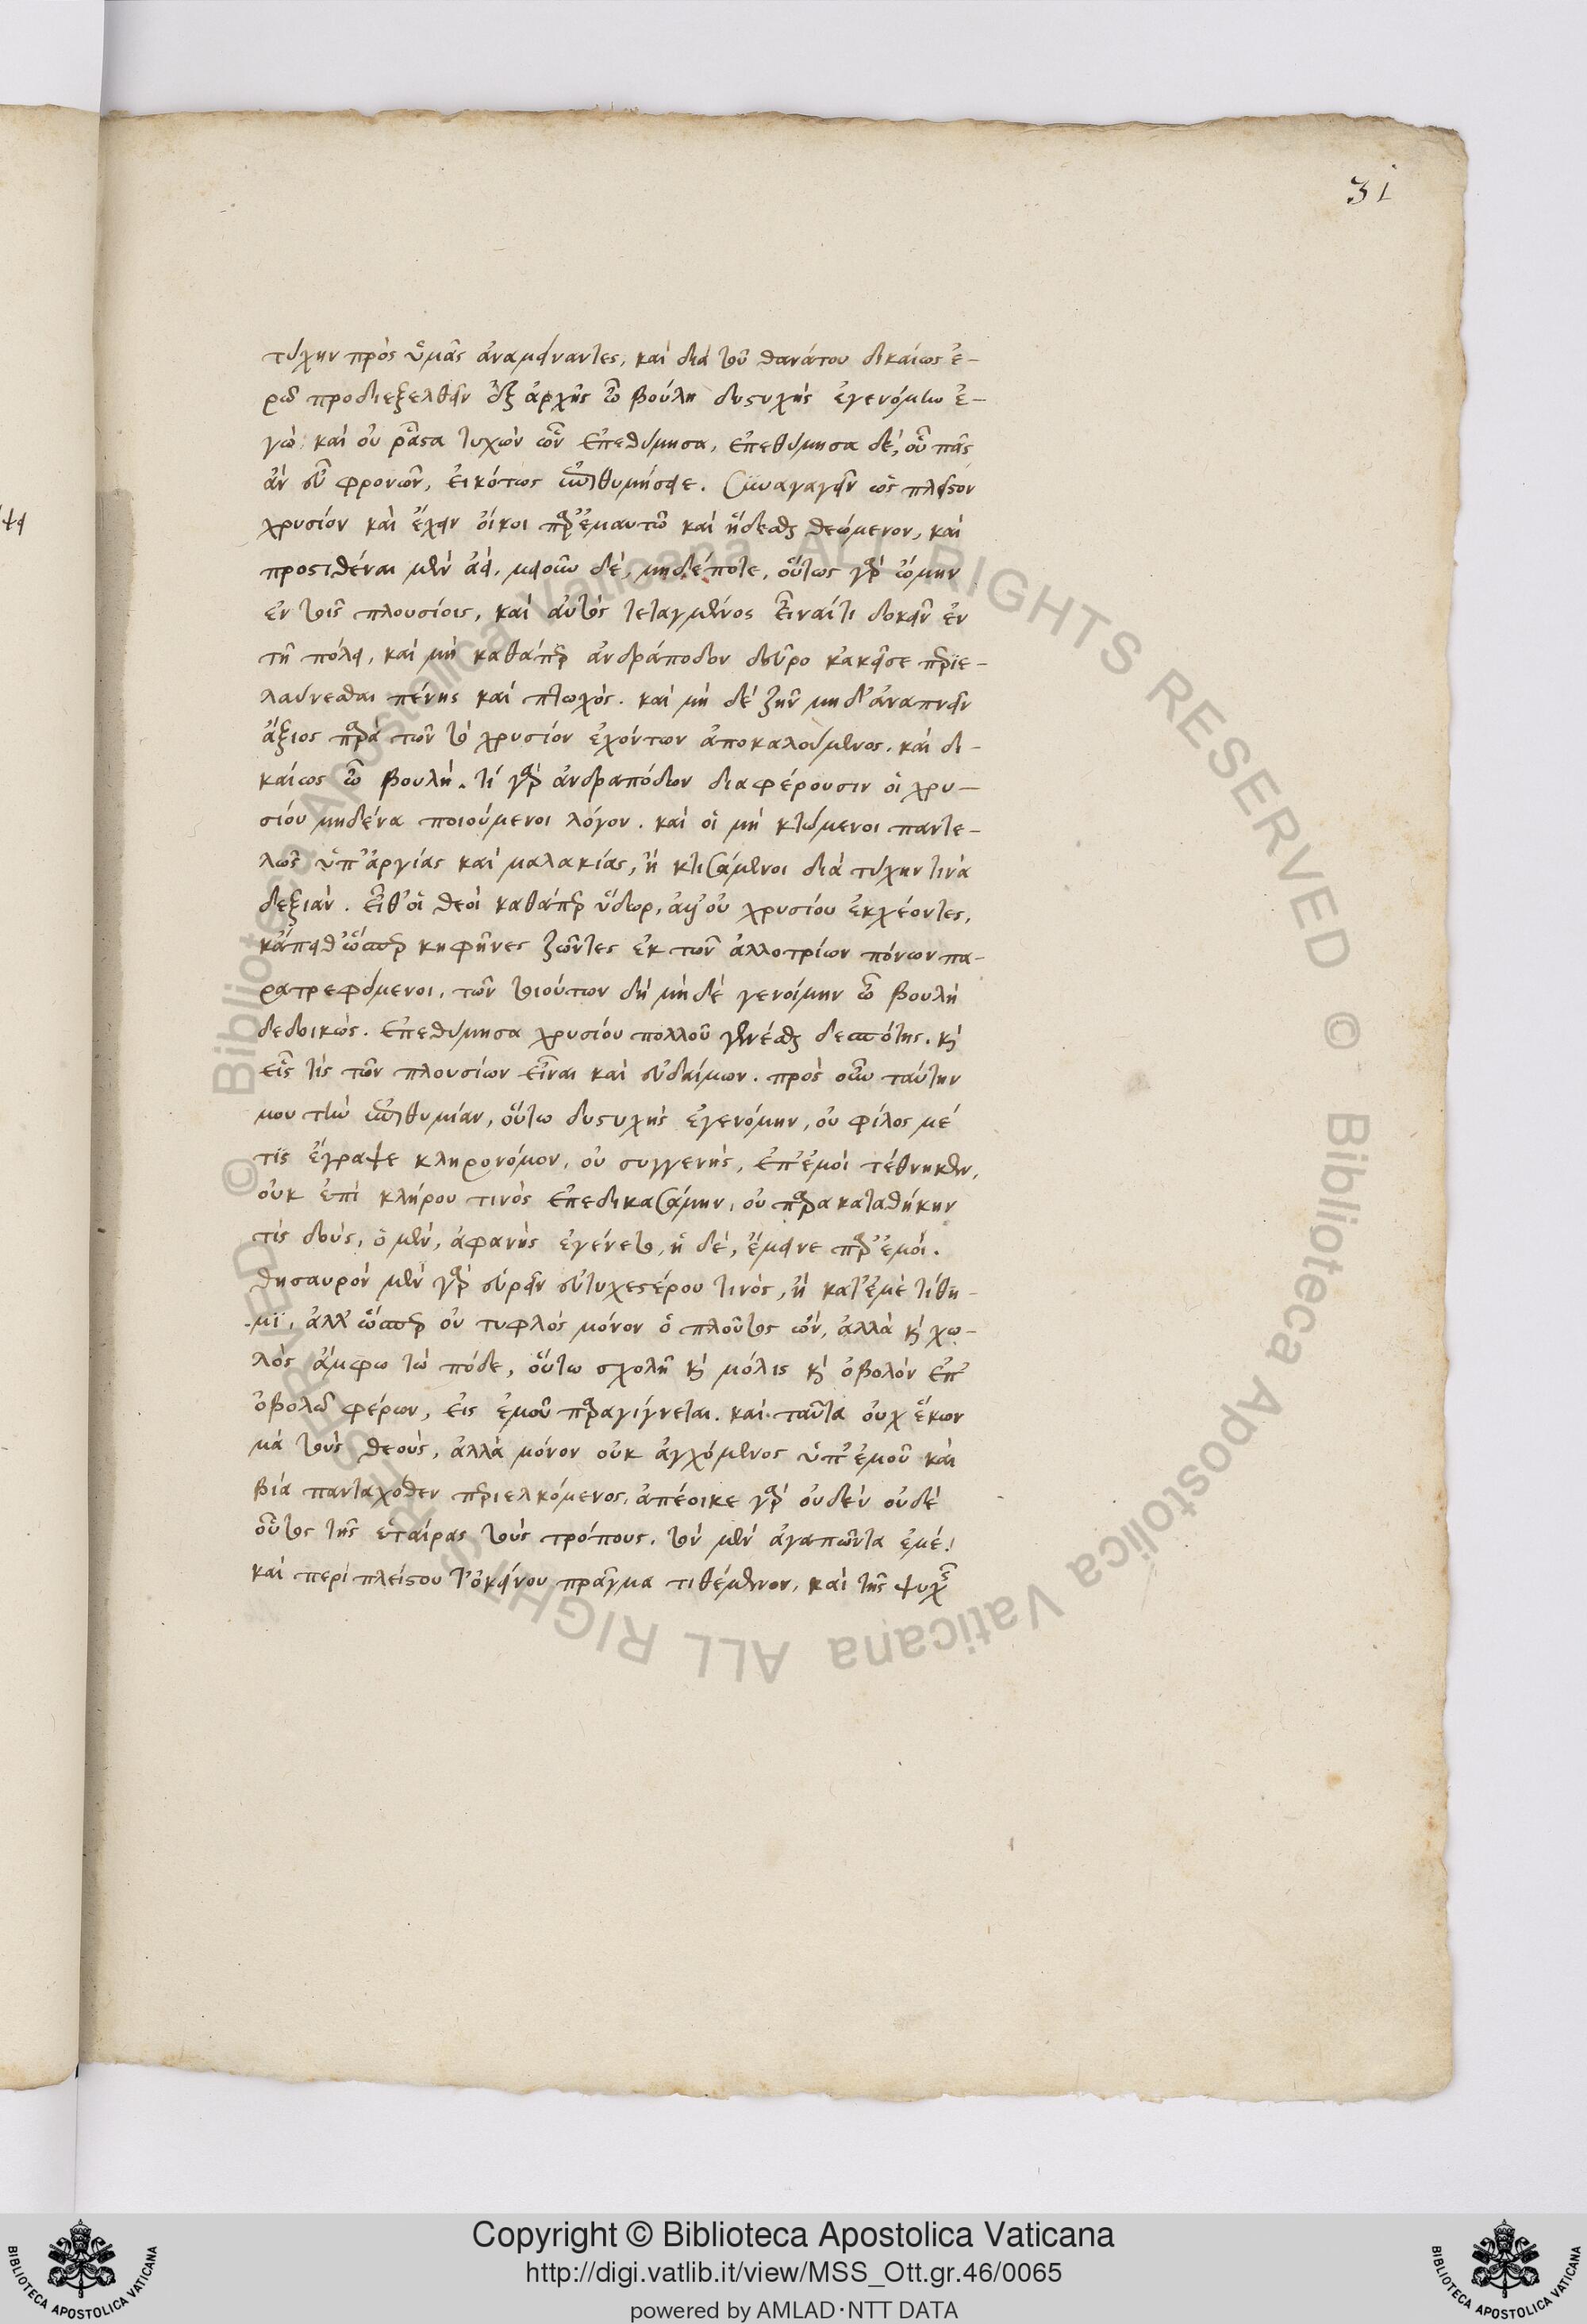 31
τύχην πρὸς ὑμᾶς ἀναμείναντες, καὶ διὰ τοῦ θανάτου δικαίως ἐ-
ρῶ προδιεξελθεῖν ἐξ ἀρχῆς ὦ βούλη δυστυχὴς ἐγενόμην ἐ-
γὼ καὶ οὐ ῥᾷστα τυχὼν ὧν ἐπεθύμησα, ἐπεθύμησα δέ, οὗ πᾶς
ἂν εὖ φρονῶν, εἰκότως ἐπιθυμήσειε. Συναγαγεῖν ὡς πλεῖστον
χρυσίον καὶ ἔχειν οἴκοι παρ' ἐμαυτῶ καὶ ἥδεσθαι θεώμενον, καὶ
προστιθέναι μὲν ἀεί, μειοῦν δὲ, μηδέποτε, οὕτως γὰρ ὤμην
ἐν τοῖς πλουσίοις, καὶ αὐτὸς τεταγμένος εἶναί τι δοκεῖν ἐν
τῇ πόλει, καὶ μὴ καθάπερ ἀνδράποδον δεῦρο κἀκεῖσε περιε-
λαύνεσθαι πένης καὶ πτωχός. καὶ μὴ δὲ ζῆν μηδ' ἀναπνεῖν
ἄξιος παρὰ τῶν τὸ χρυσίον ἐχόντων ἀποκαλούμενος. καὶ δι-
καίως ὦ βουλή. τί γὰρ ἀνδραπόδων διαφέρουσιν οἱ χρυ-
σίου μηδένα ποιούμενοι λόγον. καὶ οἱ μὴ κτώμενοι παντε-
λῶς ὑπ' ἀργίας καὶ μαλακίας, ἢ κτησάμενοι διὰ τύχην τινὰ
δεξιάν. εἶθ' οἱ θεοὶ καθάπερ ὕδωρ, ἀντ' οὐ χρυσίου ἐκχέοντες,
κἄπειθ' ὥσπερ κηφῆνες ζῶντες ἐκ τῶν ἀλλοτρίων πόνων πα-
ρατρεφόμενοι. τῶν τοιούτων δὴ μὴ δὲ γενοίμην ὦ βουλὴ
δεδοικώς. ἐπεθύμησα χρυσίου πολλοῦ γενέσθαι δεσπότης. καὶ
εἷς τὶς τῶν πλουσίων εἶναι καὶ εὐδαίμων. πρὸς οὖν ταύτην
μου τὴν ἐπιθυμίαν, οὕτω δυστυχὴς ἐγενόμην, οὐ φίλος μέ
τις ἔγραψε κληρονόμον, οὐ συγγενὴς, ἐπ' ἐμοὶ τέθνηκεν,
οὐκ ἐπὶ κλήρου τινὸς ἐπεδικασάμην, οὐ παρακαταθήκην
τὶς δοὺς, ὁ μὲν, ἀφανὴς ἐγένετο, ἡ δὲ, ἔμεινε παρ' ἐμοί.
θησαυρὸν μὲν γὰρ εὑρεῖν εὐτυχεστέρου τινὸς, ἢ κατ' ἐμὲ τίθη-
μι, ἀλλ' ὥσπερ οὐ τυφλὸς μόνον ὁ πλοῦτος ὢν, ἀλλὰ καὶ χω-
λὸς ἄμφω τὼ πόδε, οὕτω σχολῇ καὶ μόλις καὶ ὀβολὸν ἐπ'
ὀβολῶ φέρων, εἰς ἐμοῦ παραγίγνεται. καὶ ταῦτα οὐχ ἑκων
μὰ τοὺς θεοὺς, ἀλλὰ μόνον οὐκ ἀγχόμενος ὑπ' ἐμοῦ καὶ
βία πανταχόθεν περιελκόμενος, ἀπέοικε γὰρ οὐδὲν οὐδὲ
οὗτος τῆς ἑταίρας τοὺς τρόπους. τὸν μὲν ἀγαπῶντα ἐμέ!
καὶ περὶ πλείστου τ' ἐκείνου πρᾶγμα τιθέμενον, καὶ τῆς ψυχῆς
© Biblioteca Apostolica Vaticana ALL RIGHTS RESERVED © Biblioteca Apostolica Vaticana ALL RIGHTS RESERVED
Copyright © Biblioteca Apostolica Vaticana
http://digi.vatlib.it/view/MSS_Ott.gr.46/0065
powered by AMLAD·NTT DATA
BIBLIOTECA APOSTOLICA VATICANA
BIBLIOTECA APOSTOLICA VATICANA